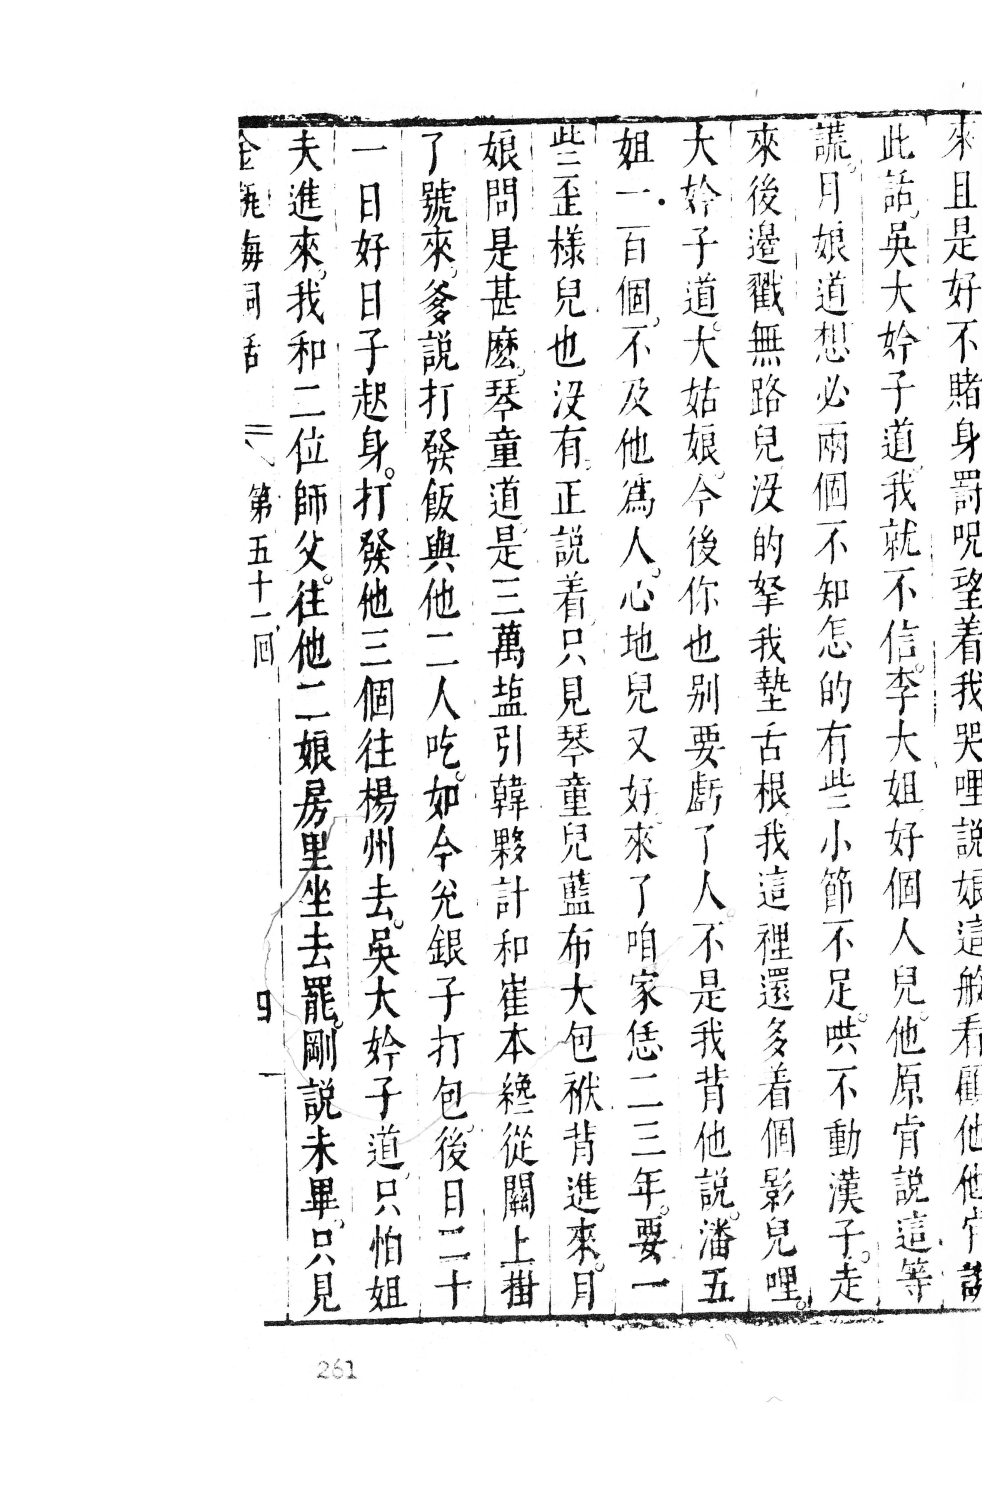 來且是好不賭身罰呪望着我哭哩説娘這般看顧他他肯説
此話吳大妗子道我就不信李大姐好個人兒他原肯説這等
謊月娘道想必兩個不知怎的有些小節不足哄不動漢子走
來後邊戳無路兒没的拏我墊舌根我這裡還多着個影兒哩
大妗子道大姑娘今後你也别要虧了人不是我背他説潘五
姐一百個不及他爲人心地兒又好來了咱家恁二三年要一
些歪樣兒也没有正説着只見琴童兒藍布大包袱背進來月
娘問是甚麽琴童道是三萬塩引韓夥計和崔本纔從關上掛
了號來爹説打發飯與他二人吃如今兊銀子打包後日二十
一日好日子起身打發他三個往楊州去吳大妗子道只怕姐
夫進來我和二位師父往他二娘房里坐去罷剛説未畢只見
金瓶梅詞話 第五十一回 9
261